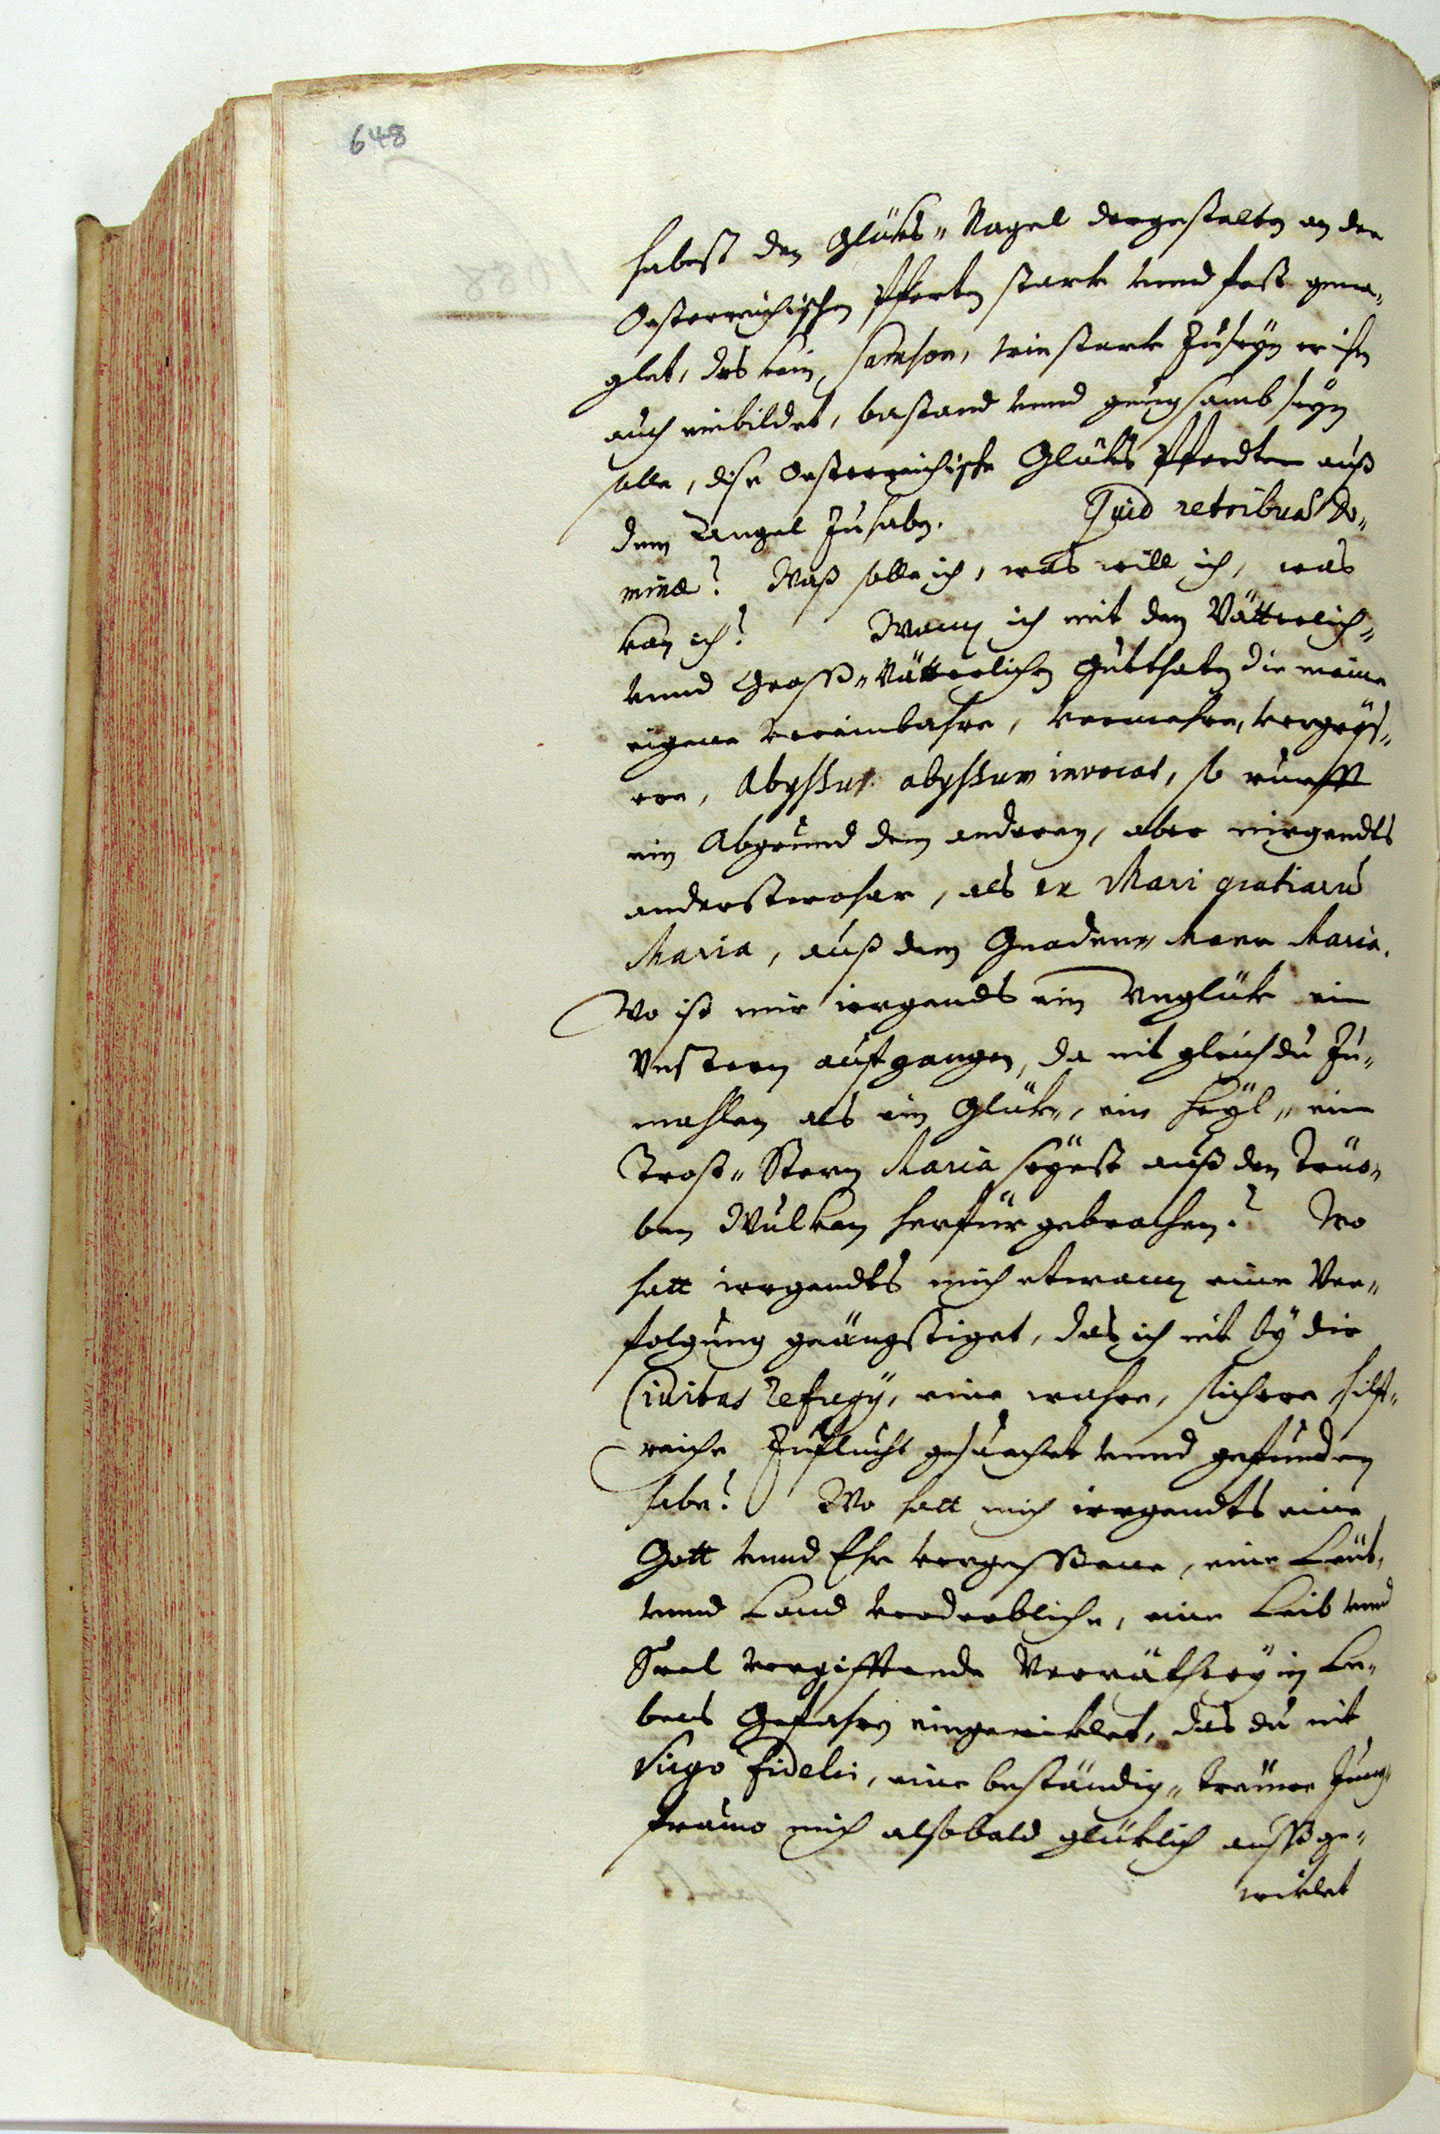 648
habest den Glüks„ Nagel dergestalten an der
Oesterreichischen Pforten stark unnd fest gena„
glet, das kein Samson, wie stark Zuseÿn er ihm
auch einbildet, bastand unnd gnugsamb seÿn
solle, dise Oesterreichische Glüks Pfordten auß
dem Angel Zuhaben. Quid retribuã Do„
minæ? Waß solle ich, was will ich, was
kan ich? Wann ich mit den Vätterlich„
unnd Groß„ Vätterlichen Gutthaten die meine
eigene vereimbahre, vermehre, vergrös„
ere, Abyßus abyßum invocat, so ruefft
ein Abgrund dem anderen, aber nirgendts
anderstwohar, als ex Mari gratiarũ
Maria, auß dem Gnaden„ Meer Maria.
Wo ist mir irgends ein Unglük ein
Unstern aufgangen, da nit gleich du Zu„
mahlen als ein Glük„, ein Heÿl„ ein
Trost„ Stern Maria seÿest auß den Trüe„
ben Wulken herfür gebrochen? Wo
hatt irgendts mich etwann eine Ver„
folgung geängstiget, das ich nit bÿ dir
Civitas Refugÿ, eine wahre, sichere hilf„
reiche Zuflucht gesuechet unnd gefunden
habe? Wo hatt mich irgendts eine
Gott unnd Ehr vergeßene, eine Leüt„
unnd Land verderbliche, eine Leib unnd
Seel vergifftende Verrätherÿ in Le„
bens Gefahren eingewiklet, das du nit
Virgo fidelis, eine beständig„ treüwe Jung„
frauw mich alsobald glüklich außge„
wiklet